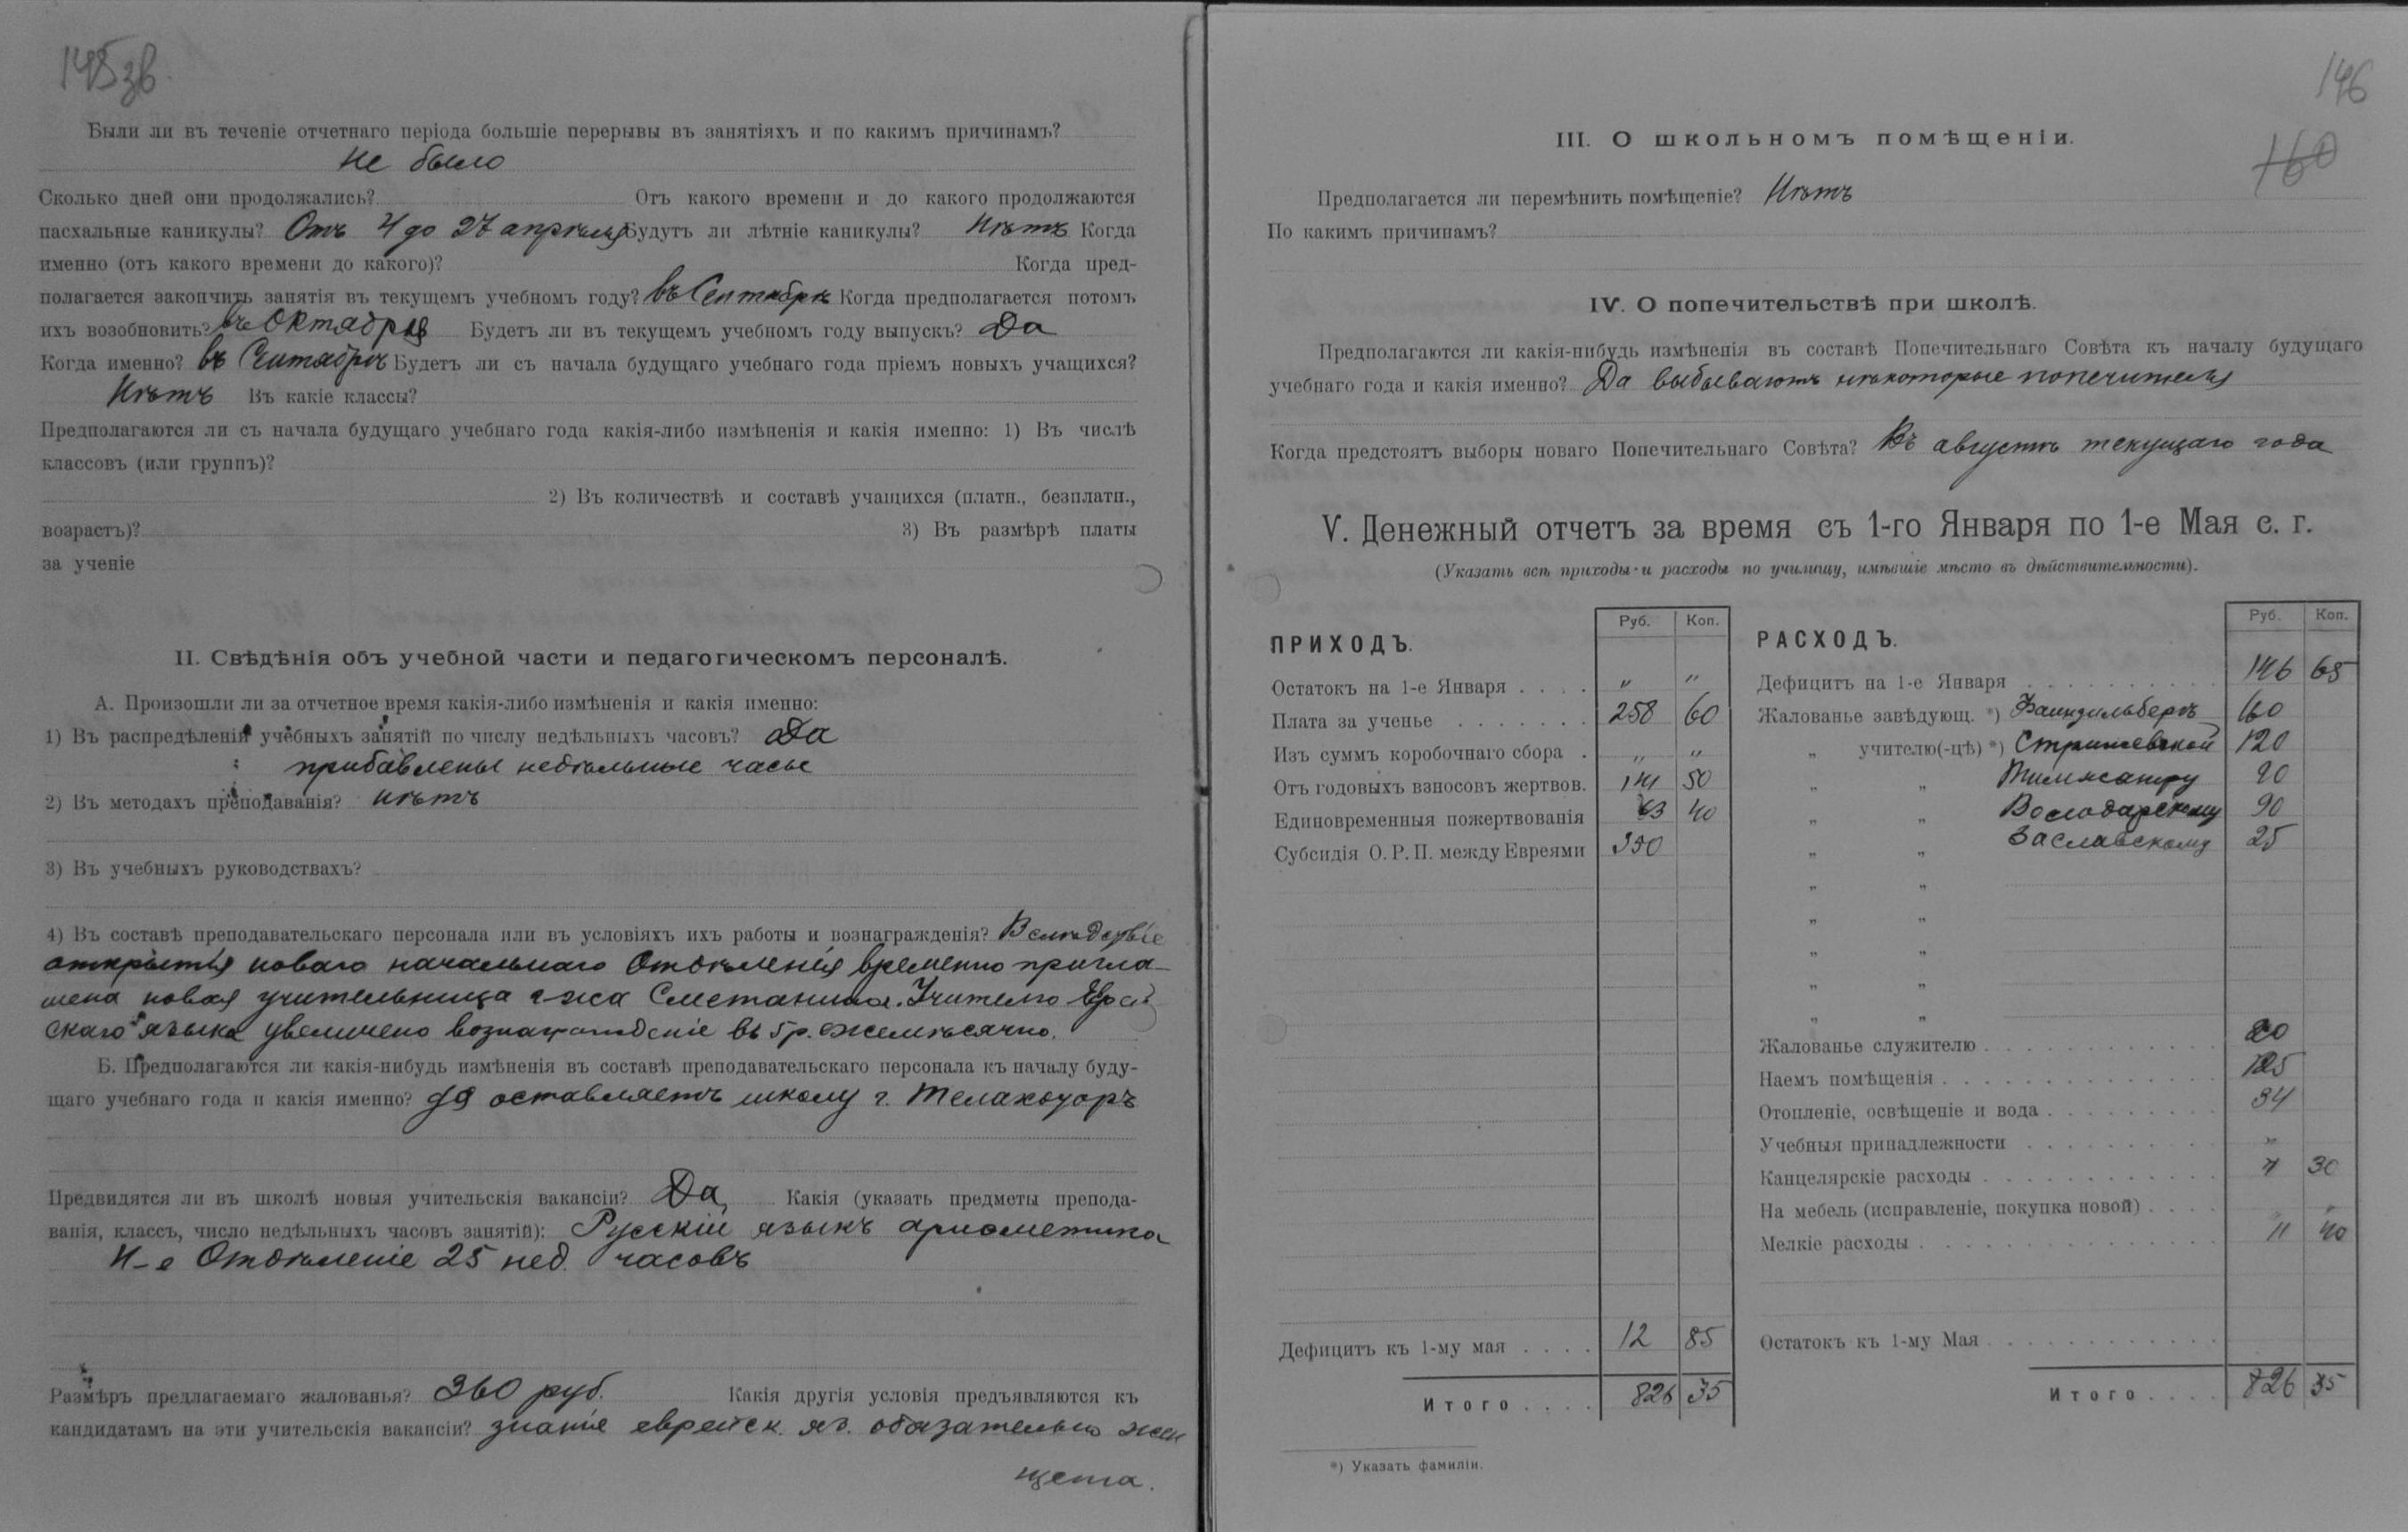 145 зв.
Были ли въ теченіе отчетнаго періода большіе перерывы въ занятіяхъ и по какимъ причинамъ?
Не было
Сколько дней они продолжались? Отъ какого времени и до какого продолжаются
пасхальные каникулы? Отъ 4 до 27 апрѣля Будутъ ли лѣтніе каникулы? Нѣтъ Когда
именно (отъ какого времени до какого)? Когда пред-
полагается закончить занятія въ текущемъ учебномъ году? въ Сентябрѣ Когда предполагается потомъ
ихъ возобновить? въ Октября Будетъ ли въ текущемъ учебномъ году выпускъ? Да
Когда именно? въ Сентябрѣ Будетъ ли съ начала будущаго учебнаго года пріемъ новыхъ учащихся?
Нѣтъ Въ какіе классы?
Предполагаются ли съ начала будущаго учебнаго года какія-либо измѣненія и какія именно: 1) Въ числѣ
классовъ (или группъ)?
2) Въ количествѣ и составѣ учащихся (платн., безплатн.,
возрастъ)? 3) Въ размѣрѣ платы
за ученіе
II. Свѣдѣнія объ учебной части и педагогическомъ персоналѣ.
А. Произошли ли за отчетное время какія-либо измѣненія и какія именно:
1) Въ распредѣленіи учебныхъ занятій по числу недѣльныхъ часовъ? Да
прибавлены недѣльные часы
2) Въ методахъ преподаванія? нѣтъ
3) Въ учебныхъ руководствахъ?
4) Въ составѣ преподавательскаго персонала или въ условіяхъ ихъ работы и вознагражденія? Вслѣдствіе
открытія новаго начальнаго Отдѣленія временно пригла-
шена новая учительница г-жа Сметанина. Учителю Еврей
скаго языка увеличено вознагражденіе въ 5 р. ежемѣсячно.
Б. Предполагаются ли какія-нибудь измѣненія въ составѣ преподавательскаго персонала къ началу буду-
щаго учебнаго года и какія именно? да оставляетъ школу г.
Предвидятся ли въ школѣ новыя учительскія вакансіи? Да, Какія (указать предметы препода-
ванія, классъ, число недѣльныхъ часовъ занятій): Русскій языкъ ариѳметика
II-е Отдѣленіе 25 нед. часовъ
Размѣръ предлагаемаго жалованья? 360 руб. Какія другія условія предъявляются къ
кандидатамъ на эти учительскія вакансіи? знаніе еврейск. яз. обязательно жен
щина.
146
160
III. О школьномъ помѣщеніи.
Предполагается ли перемѣнить помѣщеніе? Нѣтъ
По какимъ причинамъ?
IV. О попечительствѣ при школѣ.
Предполагаются ли какія-нибудь измѣненія въ составѣ Попечительнаго Совѣта къ началу будущаго
учебнаго года и какія именно? Да выбываютъ нѣкоторые попечители
Когда предстоятъ выборы новаго Попечительнаго Совѣта? Въ августѣ текущаго года
V. Денежный отчетъ за время съ 1-го Января по 1-е Мая с. г.
(Указать всѣ приходы и расходы по училищу, имѣвшіе мѣсто въ дѣйствительности).
ПРИХОДЪ. Руб. Коп.
Остатокъ на 1-е Января . . . . „ „
Плата за ученье . . . . . . . 258 60
Изъ суммъ коробочнаго сбора . „ „
Отъ годовыхъ взносовъ жертвов. 141 50
Единовременныя пожертвованія 63 40
Субсидія О. Р. П. между Евреями 350
Дефицитъ къ 1-му мая . . . . 12 85
Итого . . . . 826 35
*) Указать фамиліи.
РАСХОДЪ. Руб. Коп.
Дефицитъ на 1-е Января 146 65
Жалованье завѣдующ. *) Файнзильберъ 160
„ учителю(-цѣ) *) Стрижевской 120
„ „ 90
„ „ Володарскому 90
„ „ Заславскому 25
„ „
„ „
„ „
„ „
„ „
Жалованье служителю . . . 20
Наемъ помѣщенія . . . 125
Отопленіе, освѣщеніе и вода . . . 34
Учебныя принадлежности . . . „
Канцелярскіе расходы . . . 4 30
На мебель (исправленіе, покупка новой) . . . . „ „
Мелкіе расходы . . . 11 40
Остатокъ къ 1-му Мая . . .
Итого . . . . 826 35